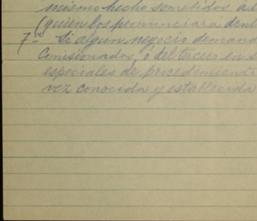 mismo hecho sometidos a
quienes los pronunciará dent
7ª Si algun negocio demand
Comisionados, o del tercero en
especiales de procedimiento
vez conocida y establecida